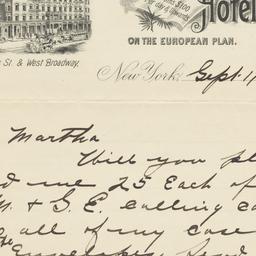 Hotel
$1.00
per day & Upwards
ON THE EUROPEAN PLAN.
St. & West Broadway.
New York, Sept. 1
Martha
Will you pl
d me 25 Each of
M. & G. E. calling ca
all of my case
Envelopes send